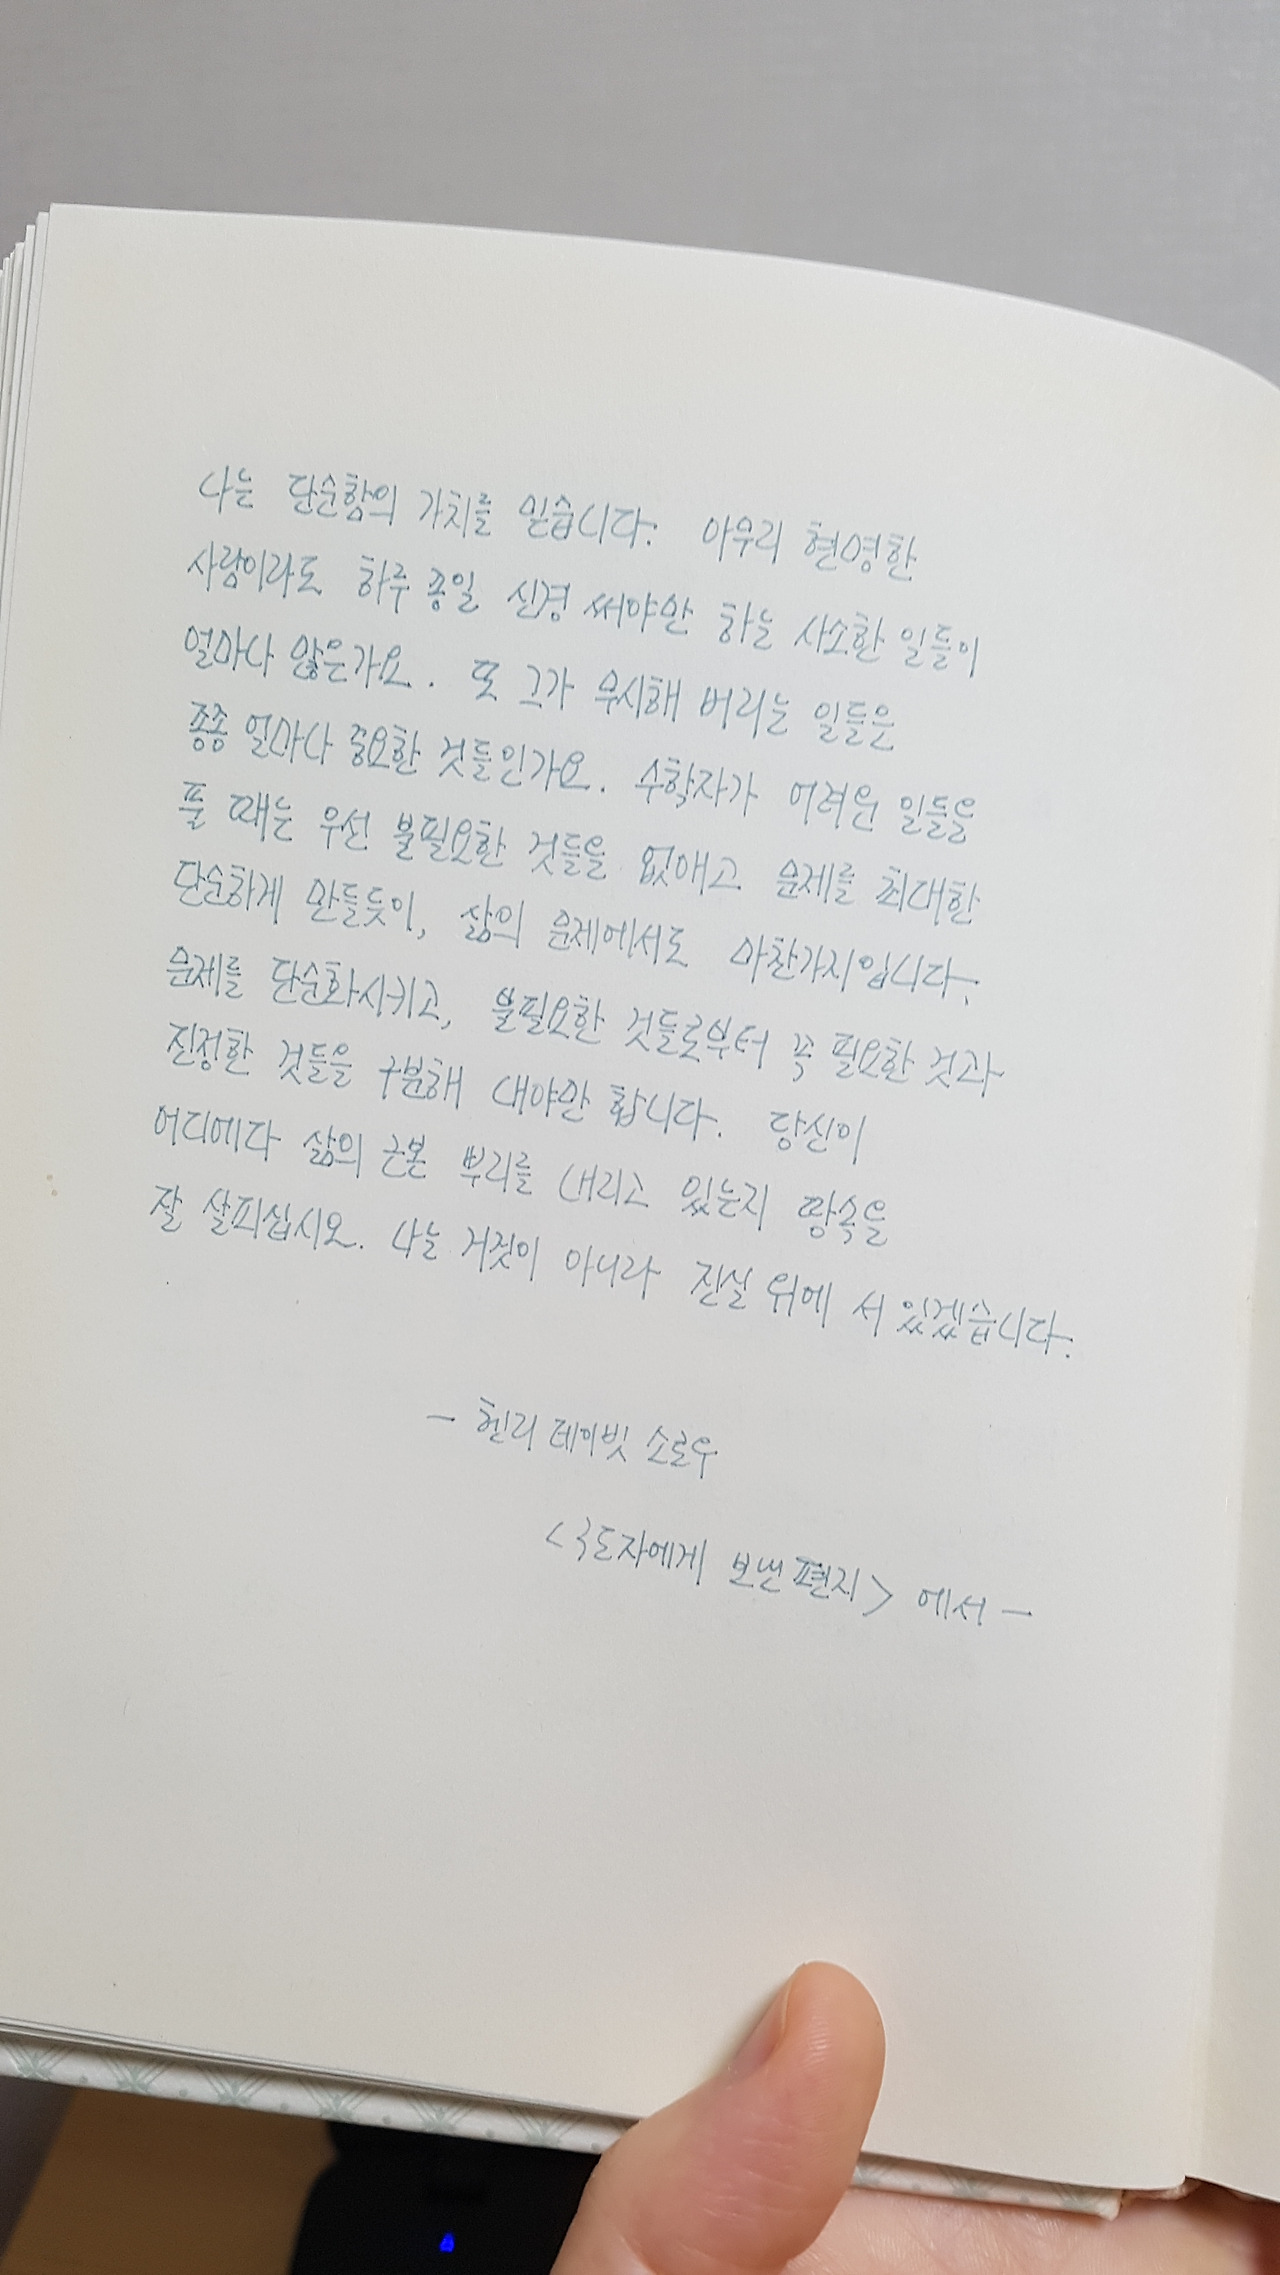 나는 단순함의 가치를 믿습니다. 아무리 현명한
사람이라도 하루 종일 신경 써야만 하는 사소한 일들이
얼마나 많은가요. 또 그가 무시해 버리는 일들은
종종 얼마나 중요한 것들인가요. 수학자가 어려운 일들을
풀 때는 우선 불필요한 것들을 없애고 문제를 최대한
단순하게 만들듯이, 삶의 문제에서도 마찬가지입니다.
문제를 단순화시키고, 불필요한 것들로부터 꼭 필요한 것과
진정한 것들을 구분해 내야만 합니다. 당신이
어디에다 삶의 근본 뿌리를 내리고 있는지 땅속을
잘 살피십시오. 나는 거짓이 아니라 진실 위에 서 있겠습니다.
- 헨리 데이빗 소로우
<구도자에게 보낸 편지> 에서 -